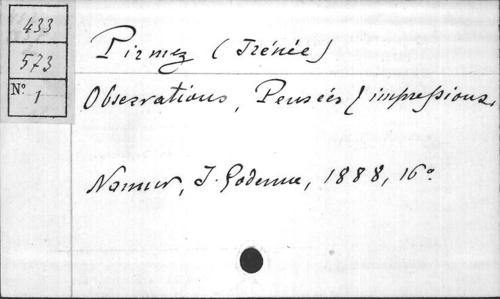 433
573
N° 1
Pirmez (Irénée)
Observations, Pensées & impressions.
Namur, J. Godenne, 1888, 16°